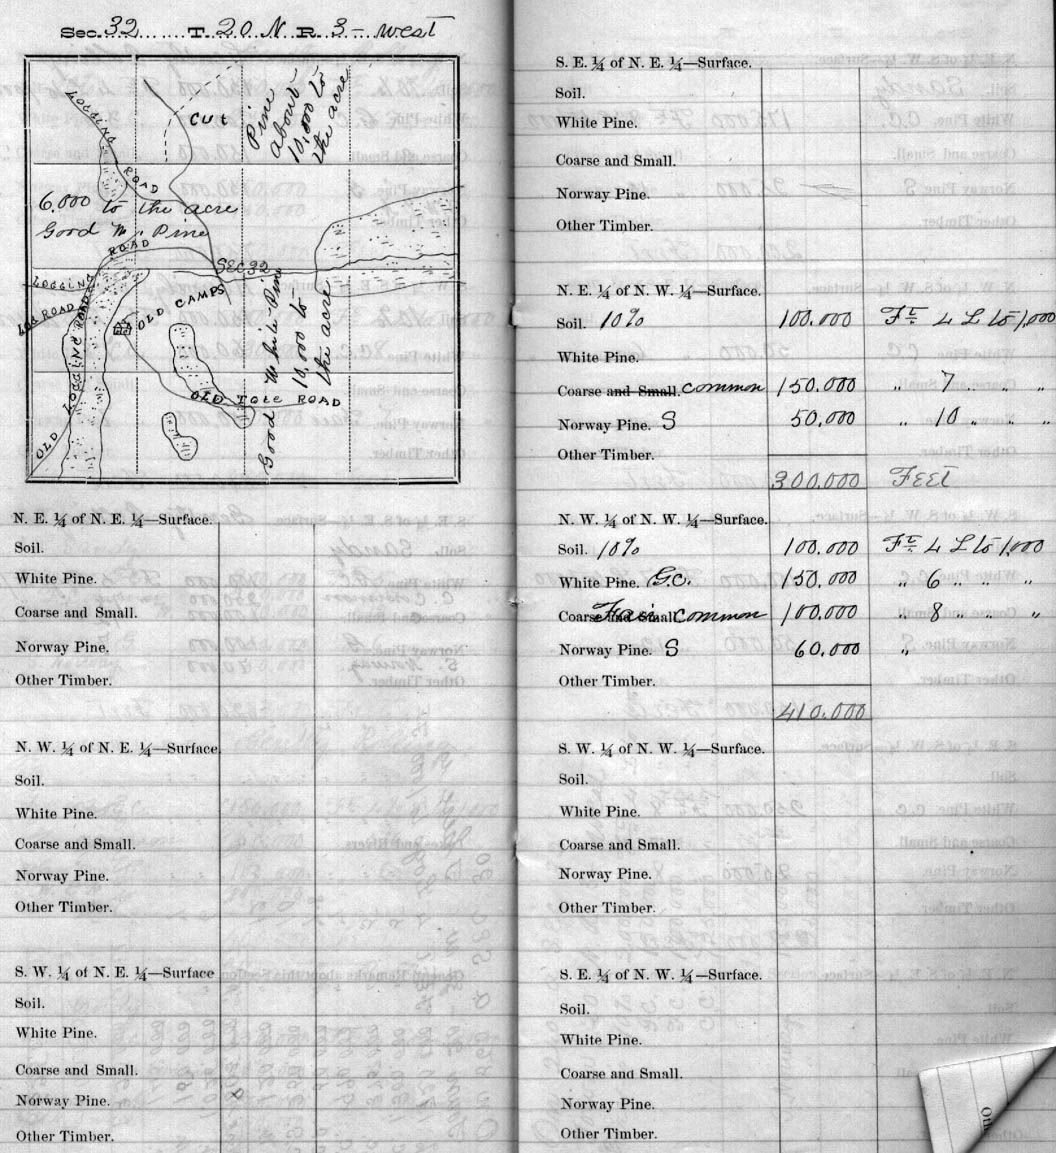 Sec. 32 T. 20 N R. 3 - West
LOGGING
ROAD
CUT
Pine
about
10,000 to
the acre
6,000 to the acre
Good W. Pine
ROAD
LOGGING
SEC 32
LOG ROAD
LOGGING ROAD
OLD
CAMPS
OLD TOTE ROAD
OLD
Good White Pine
10,000 to
the acre
N. E. ¼ of N. E. ¼—Surface.
Soil.
White Pine.
Coarse and Small.
Norway Pine.
Other Timber.
N. W. ¼ of N. E. ¼—Surface.
Soil.
White Pine.
Coarse and Small.
Norway Pine.
Other Timber.
S. W. ¼ of N. E. ¼—Surface
Soil.
White Pine.
Coarse and Small.
Norway Pine.
Other Timber.
S. E. ¼ of N. E. ¼—Surface.
Soil.
White Pine.
Coarse and Small.
Norway Pine.
Other Timber.
N. E. ¼ of N. W. ¼—Surface.
Soil. 10% 100.000 Ft. 4 L to 1,000
White Pine.
Coarse and Small. common 150.000 " 7 " "
Norway Pine. S 50.000 " 10 " " "
Other Timber.
300.000 FEET
N. W. ¼ of N. W. ¼—Surface.
Soil. 10% 100.000 Ft. 4 L to 1,000
White Pine. G.C. 150.000 " 6 " "
Coarse and Small. Fair common 100.000 " 8 " " "
Norway Pine. S 60.000 "
Other Timber.
410.000
S. W. ¼ of N. W. ¼—Surface.
Soil.
White Pine.
Coarse and Small.
Norway Pine.
Other Timber.
S. E. ¼ of N. W. ¼—Surface.
Soil.
White Pine.
Coarse and Small.
Norway Pine.
Other Timber.
Oth